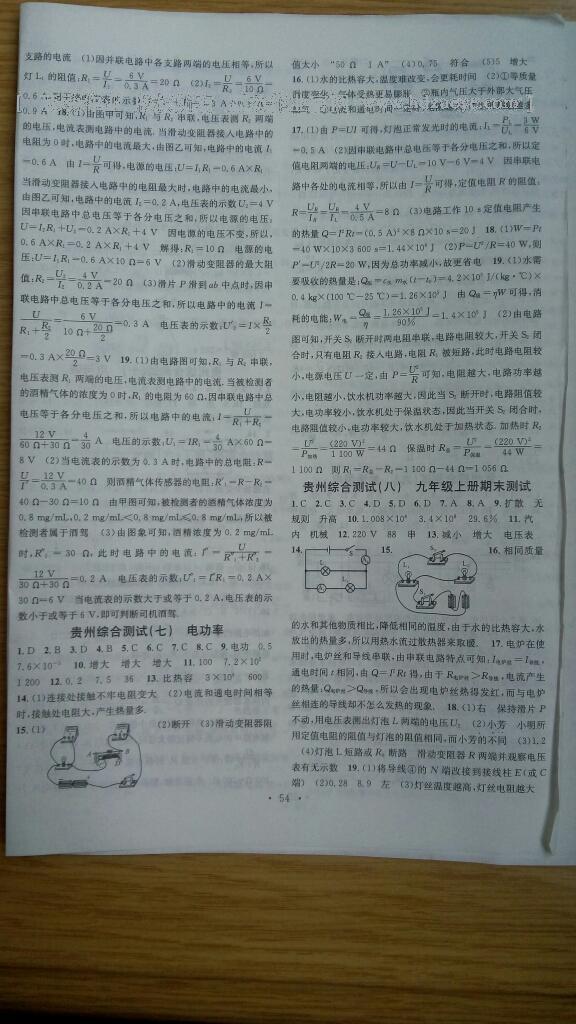 支路的电流　(1)因并联电路中各支路两端的电压相等,所以
灯L₁的阻值:R₁=U/I₁=6 V/0.3 A=20 Ω　(2)I₂=U/R₂=6 V/10 Ω=
0.6 A
0.9 A　18.(1)由图甲可知,R₁与R₂串联,电压表测R₂两端
的电压,电流表测电路中的电流.当滑动变阻器接入电路中的
电阻为0时,电路中的电流最大,由图乙可知,电路中的电流I₁
=0.6 A　由I=U/R可得,电源的电压:U=I₁R₁=0.6 A×R₁
当滑动变阻器接入电路中的电阻最大时,电路中的电流最小,
由图乙可知,电路中的电流I₂=0.2 A,电压表的示数U₂=4 V
因串联电路中总电压等于各分电压之和,所以电源的电压:
U=I₂R₁+U₂=0.2 A×R₁+4 V　因电源的电压不变,所以,
0.6 A×R₁=0.2 A×R₁+4 V　解得:R₁=10 Ω　电源的电
压:U=I₁R₁=0.6 A×10 Ω=6 V　(2)滑动变阻器的最大阻
值:R₂=U₂/I₂=4 V/0.2 A=20 Ω　(3)滑片P滑到ab中点时,因串
联电路中总电压等于各分电压之和,所以电路中的电流I=
U/(R₁+R₂/2)=6 V/(10 Ω+20 Ω/2)=0.3 A　电压表的示数:U′₂=I×R₂/2
=0.3 A×20 Ω/2=3 V　19.(1)由电路图可知,R₁与R₂串联,
电压表测R₁两端的电压,电流表测电路中的电流.当被检测者
的酒精气体的浓度为0时,R₁的电阻为60 Ω,因串联电路中总
电压等于各分电压之和,所以电路中的电流:I=U/(R₁+R₂)=
12 V/(60 Ω+30 Ω)=4/30 A　电压的示数:U₁=IR₁=4/30 A×60 Ω=
8 V　(2)当电流表的示数为0.3 A时,电路中的总电阻:R=
U/I′=12 V/0.3 A=40 Ω　则酒精气体传感器的电阻:R′₁=R−R₂=
40 Ω−30 Ω=10 Ω　由甲图可知,被检测者的酒精气体浓度为
0.8 mg/mL,0.2 mg/mL<0.8 mg/mL≤0.8 mg/mL,所以被
检测者属于酒驾　(3)由图象可知,酒精浓度为0.2 mg/mL
时,R″₁=30 Ω,此时电路中的电流:I″=U/(R″₁+R″₂)=
12 V/(30 Ω+30 Ω)=0.2 A　电压表的示数:U″₁=I″R₁=0.2 A×
30 Ω=6 V　当电流表的示数大于或等于0.2 A,电压表的示
数小于或等于6 V,即可判断司机酒驾.
贵州综合测试(七)　电功率
1.D　2.B　3.D　4.B　5.C　6.C　7.C　8.C　9.电功　0.5
7.6×10⁻³　10.增大　增大　增大　11.100　7.2×10³
1 200　12.0.2　7.5　36　13.比热容　3×10⁶　600
14.(1)连接处接触不牢电阻变大　(2)电流和通电时间相等
时,接触处电阻大,产生热量多.
15.(1)　(2)断开　(3)滑动变阻器阻
值太小　“50 Ω　1 A”　(4)0.75　符合　(5)5　增大
16.(1)水的比热容大,温度难改变,会更耗时间　(2)①等质量
17.(1)由P=UI可得,灯泡正常发光时的电流:I_L=P_L/U_L=3 W/6 V
=0.5 A　(2)因串联电路中总电压等于各分电压之和,所以定
值电阻两端的电压:U_R=U−U_L=10 V−6 V=4 V　因串联电
路中各处的电流相等,所以由I=U/R可得,定值电阻R的阻值:
R=U_R/I_R=U_R/I_L=4 V/0.5 A=8 Ω　(3)电路工作10 s定值电阻产生
的热量Q=I²Rt=(0.5 A)²×8 Ω×10 s=20 J　18.(1)W=Pt
=40 W×10×3 600 s=1.44×10⁶ J　(2)P=U²/R=40 W,则
P′=U²/2R=20 W,因为总功率减小,故更省电　19.(1)水需
要吸收的热量是:Q吸=c水m水(t−t₀)=4.2×10³ J/(kg·℃)×
0.4 kg×(100 ℃−25 ℃)=1.26×10⁵ J　由Q吸=ηW可得,消
耗的电能:W电=Q吸/η=1.26×10⁵ J/90%=1.4×10⁵ J　(2)由电路
图可知,开关S₂断开时两电阻串联,电路电阻较大,开关S₂闭
合时,只有电阻R₂接入电路,电阻R₁被短路,此时电路电阻较
小,电源电压U一定,由P=U²/R可知,电阻越大,电路功率越
小,电阻越小,饮水机功率越大,因此当S₂断开时,电路阻值较
大,电功率较小,饮水处于保温状态,因此当开关S₂闭合时,
电路阻值较小,电功率较大,饮水机处于加热状态.加热时R₂
=U²/P加热=(220 V)²/1 100 W=44 Ω　保温时R总=U²/P保温=(220 V)²/44 W=
1 100 Ω　则R₁=R总−R₂=1 100 Ω−44 Ω=1 056 Ω.
贵州综合测试(八)　九年级上册期末测试
1.C　2.C　3.C　4.D　5.D　6.D　7.A　8.A　9.扩散　无
规则　升高　10.1.008×10⁶　3.4×10⁶　29.6%　11.汽
内　机械　12.220 V　88　串　13.减小　增大　电压表
14.　15.　16.相同质量
的水和其他物质相比,降低相同的温度,由于水的比热容大,水
放出的热量多,所以用热水流过散热器来取暖.　17.电炉在使
用时,电炉丝和导线串联,由串联电路特点可知:I电炉丝=I导线,
通电时间t相同,由Q=I²Rt得,由于R电炉丝>R导线,电流产生
的热量:Q电炉丝>Q导线,所以会出现电炉丝热得发红,而与电炉
丝相连的导线却不怎么发热的现象.　18.(1)右　保持滑片P
不动,用电压表测出灯泡L两端的电压U₂　(2)小芳　小明所
用定值电阻的阻值与灯泡的阻值相同,而小芳的不同　(3)1.2
(4)灯泡L短路或R₁断路　滑动变阻器R两端并观察电压
表有无示数　19.(1)将导线④的N端改接到接线柱E(或C
端)　(2)0.28　8.9　左　(3)灯丝温度越高,灯丝电阻越大
· 54 ·